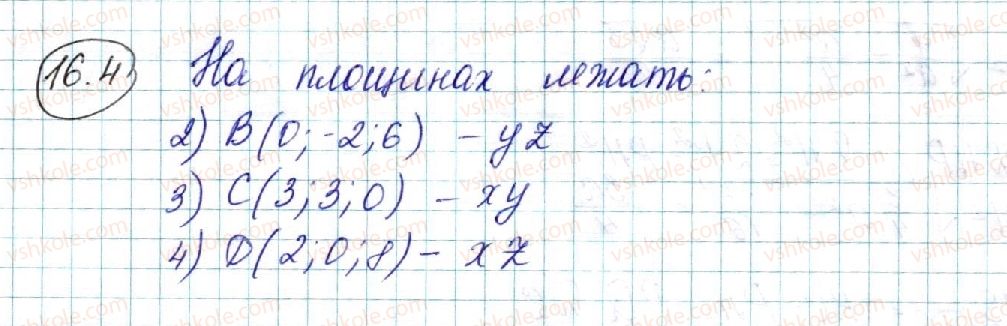 16.4. На площинах лежать:
2) B(0; -2; 6) - yz
3) C(3; 3; 0) - xy
4) D(2; 0; 8) - xz